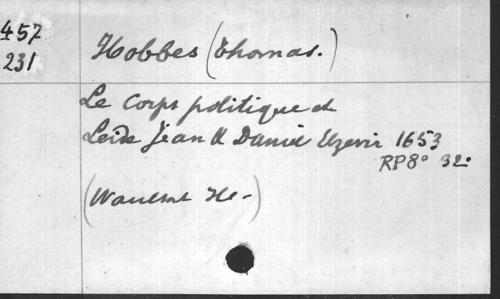 457
231
Hobbes (Thomas.)
Le Corps politique et
Leide Jean & Daniel Elzevir 1653
RP8° 32°